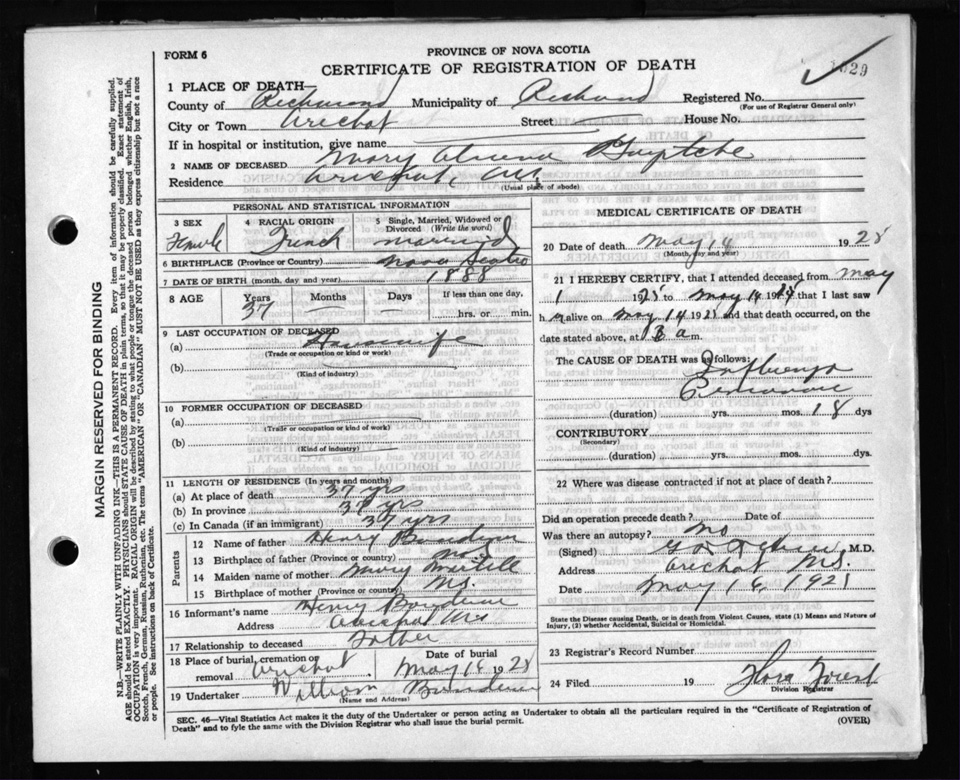 FORM 6
PROVINCE OF NOVA SCOTIA
CERTIFICATE OF REGISTRATION OF DEATH
1629
1 PLACE OF DEATH
County of Richmond Municipality of Richmond Registered No.
(For use of Registrar General only)
City or Town Arichat Street House No.
If in hospital or institution, give name
2 NAME OF DECEASED Mary
Residence Arichat,
(Usual place of abode)
PERSONAL AND STATISTICAL INFORMATION
3 SEX 4 RACIAL ORIGIN 5 Single, Married, Widowed or Divorced (Write the word)
Female French married
6 BIRTHPLACE (Province or Country) Nova Scotia
7 DATE OF BIRTH (month, day and year) 1888
8 AGE Years Months Days If less than one day,
37 hrs. or min.
9 LAST OCCUPATION OF DECEASED
(a) Housewife
(Trade or occupation or kind of work)
(b)
(Kind of industry)
10 FORMER OCCUPATION OF DECEASED
(a)
(Trade or occupation or kind of work)
(b)
(Kind of industry)
11 LENGTH OF RESIDENCE (In years and months)
(a) At place of death 37 yrs
(b) In province 37 yrs
(c) In Canada (if an immigrant) 37 yrs
Parents
12 Name of father Henry
13 Birthplace of father (Province or country) N.S.
14 Maiden name of mother Mary Martell
15 Birthplace of mother (Province or country) N.S.
16 Informant's name Henry
Address Arichat NS
17 Relationship to deceased Father
18 Place of burial, cremation or removal Arichat Date of burial May 16 1928
19 Undertaker William
(Name and Address)
MEDICAL CERTIFICATE OF DEATH
20 Date of death May 14 1928
(Month, day and year)
21 I HEREBY CERTIFY, that I attended deceased from May
1 to May 14 that I last saw
h alive on May 14 and that death occurred, on
date stated above, at m.
The CAUSE OF DEATH was as follows:
Influenza
(duration) yrs. mos. 18 dys
CONTRIBUTORY
(Secondary)
(duration) yrs. mos. dys.
22 Where was disease contracted if not at place of death?
Did an operation precede death? Date of
Was there an autopsy? No
(Signed) M.D.
Address Arichat N.S.
Date May 16, 1928
State the Disease causing Death, or in death from Violent Causes, state (1) Means and Nature of Injury, (2) whether Accidental, Suicidal or Homicidal.
23 Registrar's Record Number
24 Filed 19 Flora Forest
Division Registrar
SEC. 46—Vital Statistics Act makes it the duty of the Undertaker or person acting as Undertaker to obtain all the particulars required in the "Certificate of Registration of
Death" and to fyle the same with the Division Registrar who shall issue the burial permit. (OVER)
MARGIN RESERVED FOR BINDING
N.B.—WRITE PLAINLY WITH UNFADING INK—THIS IS A PERMANENT RECORD. Every item of information should be carefully supplied.
AGE should be stated EXACTLY. PHYSICIANS should STATE CAUSE OF DEATH in plain terms, so that it may be properly classified. Exact statement of
OCCUPATION is very important. RACIAL ORIGIN will be described by stating to what people or tongue the deceased person belonged, whether English, Irish,
Scotch, French, German, Russian, Ruthenian, etc. The terms "AMERICAN" OR "CANADIAN" MUST NOT BE USED as they express citizenship but not a race
or people. See instructions on back of Certificate.